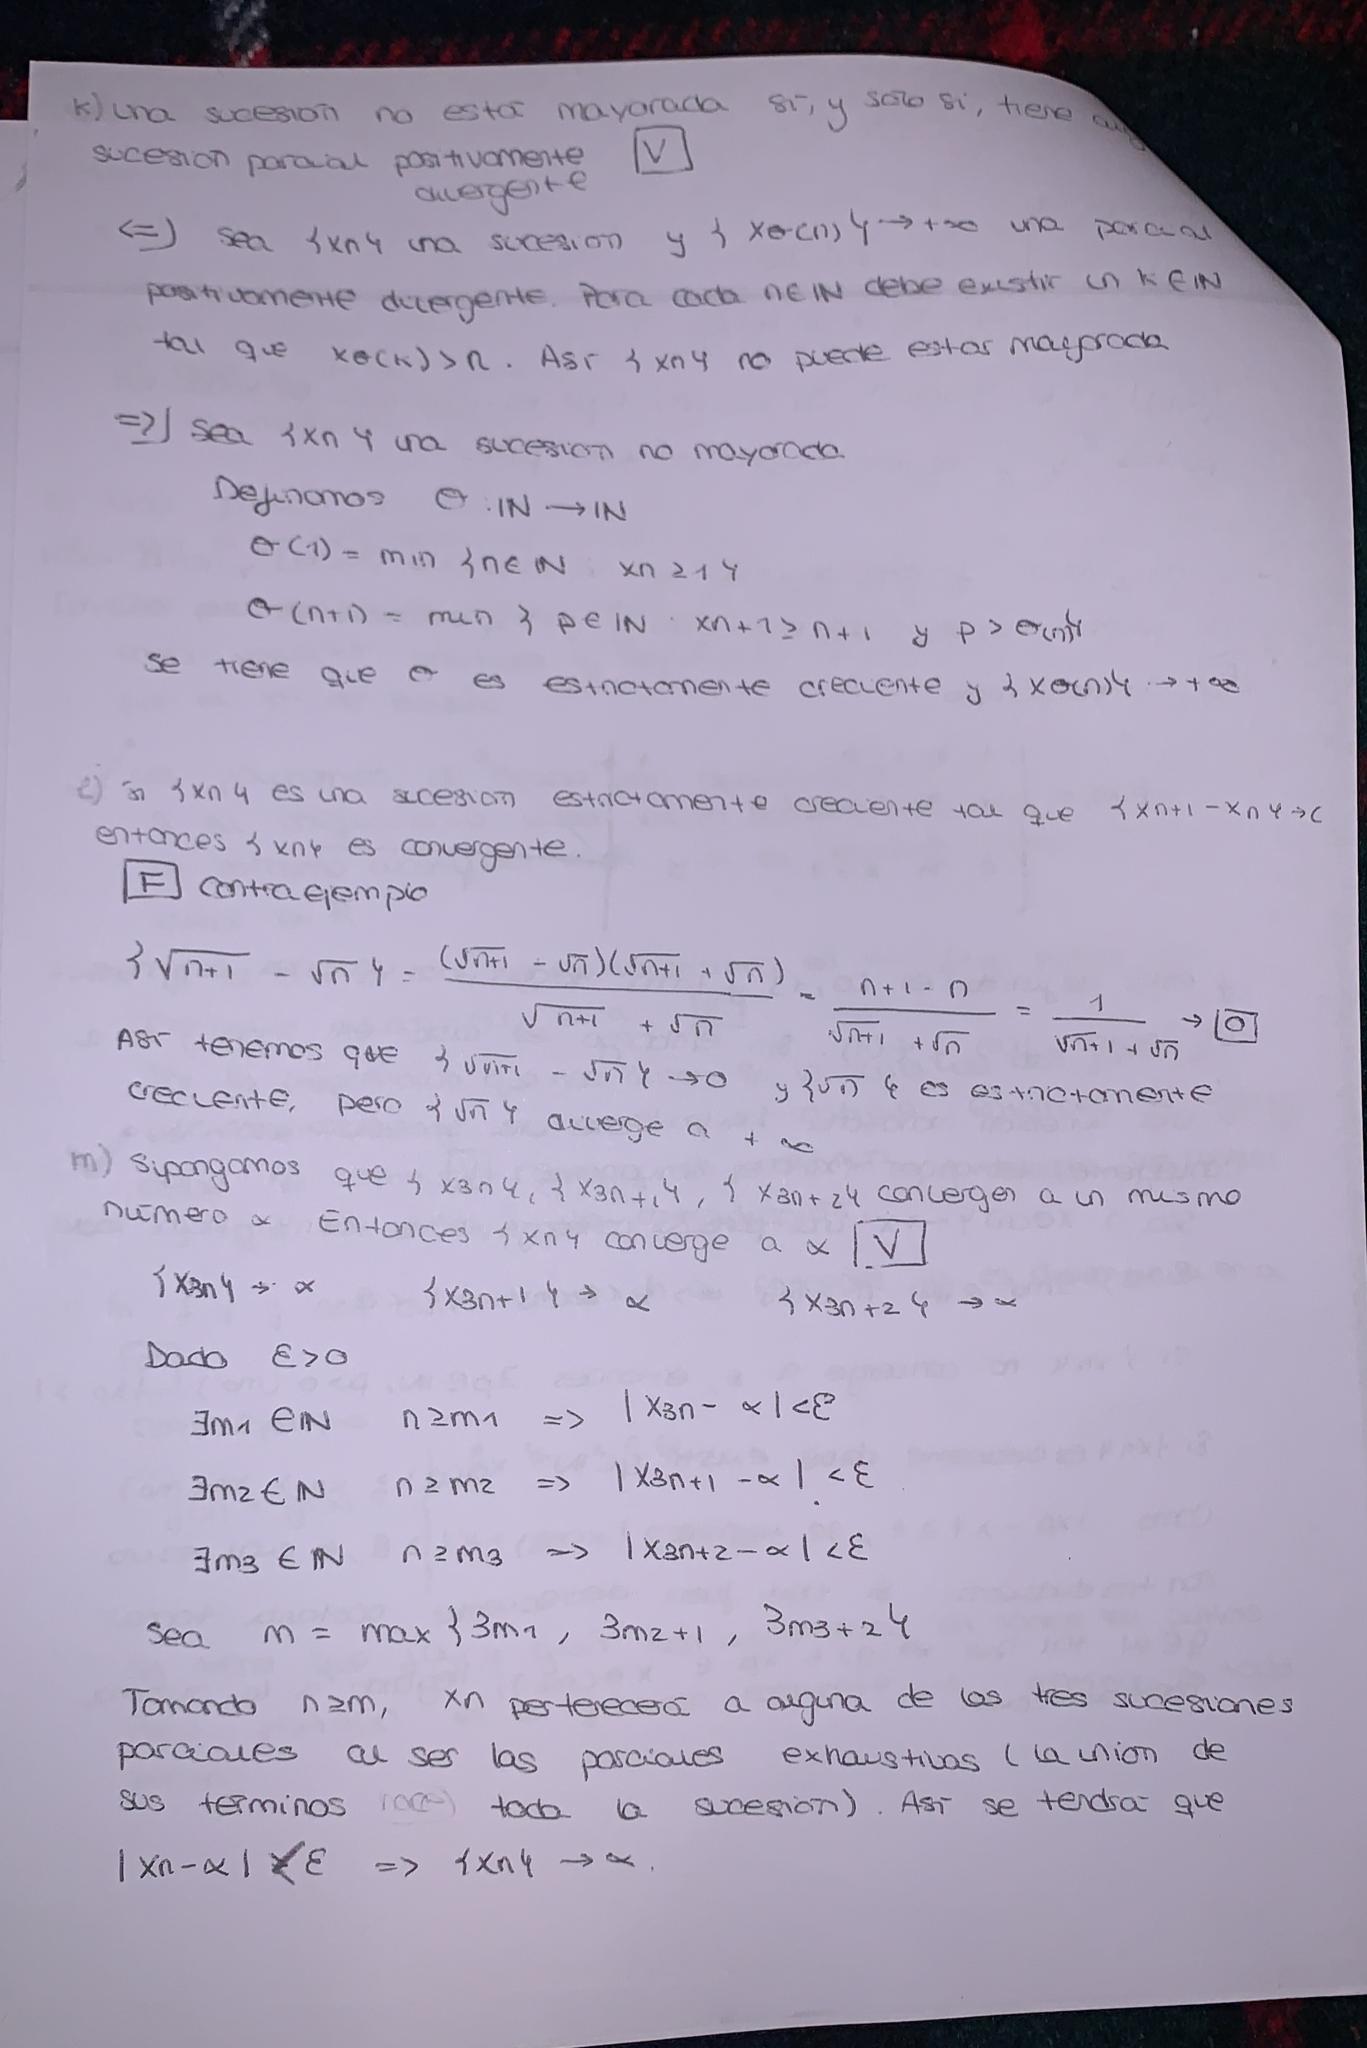 k) una sucesión no está mayorada si, y solo si, tiene
sucesion parcial positivamente divergente [V]
<=) sea {xn} una sucesion y {xσ(n)} → +∞ una parcial
positivamente divergente. Para cada n∈ℕ debe existir un k∈ℕ
tal que xσ(k) > n. Así {xn} no puede estar mayorada
=>) sea {xn} una sucesión no mayorada
Definamos σ: ℕ → ℕ
σ(1) = min {n∈ℕ : xn ≥ 1}
σ(n+1) = min {p∈ℕ : xn+1 ≥ n+1 y p > σ(n)}
se tiene que σ es estrictamente creciente y {xσ(n)} → +∞
l) si {xn} es una sucesion estrictamente creciente tal que {xn+1 - xn} →
entonces {xn} es convergente.
[F] contraejemplo
{√n+1 - √n} = (√n+1 - √n)(√n+1 + √n) / √n+1 + √n = n+1-n / √n+1 + √n = 1 / √n+1 + √n → [0]
Así tenemos que {√n+1 - √n} → 0 y {√n} es estrictamente
creciente, pero {√n} diverge a +∞
m) Supongamos que {x3n}, {x3n+1}, {x3n+2} convergen a un mismo
número α Entonces {xn} converge a α [V]
{x3n} → α {x3n+1} → α {x3n+2} → α
Dado ε>0
∃m1 ∈ℕ n≥m1 => |x3n - α| < ε
∃m2 ∈ ℕ n≥m2 => |x3n+1 - α| < ε
∃m3 ∈ ℕ n≥m3 => |x3n+2 - α| < ε
Sea m = max {3m1, 3m2+1, 3m3+2}
Tomando n≥m, xn pertenecerá a alguna de las tres sucesiones
parciales al ser las parciales exhaustivas (la unión de
sus terminos toda la sucesión). Así se tendrá que
|xn-α| < ε => {xn} → α.